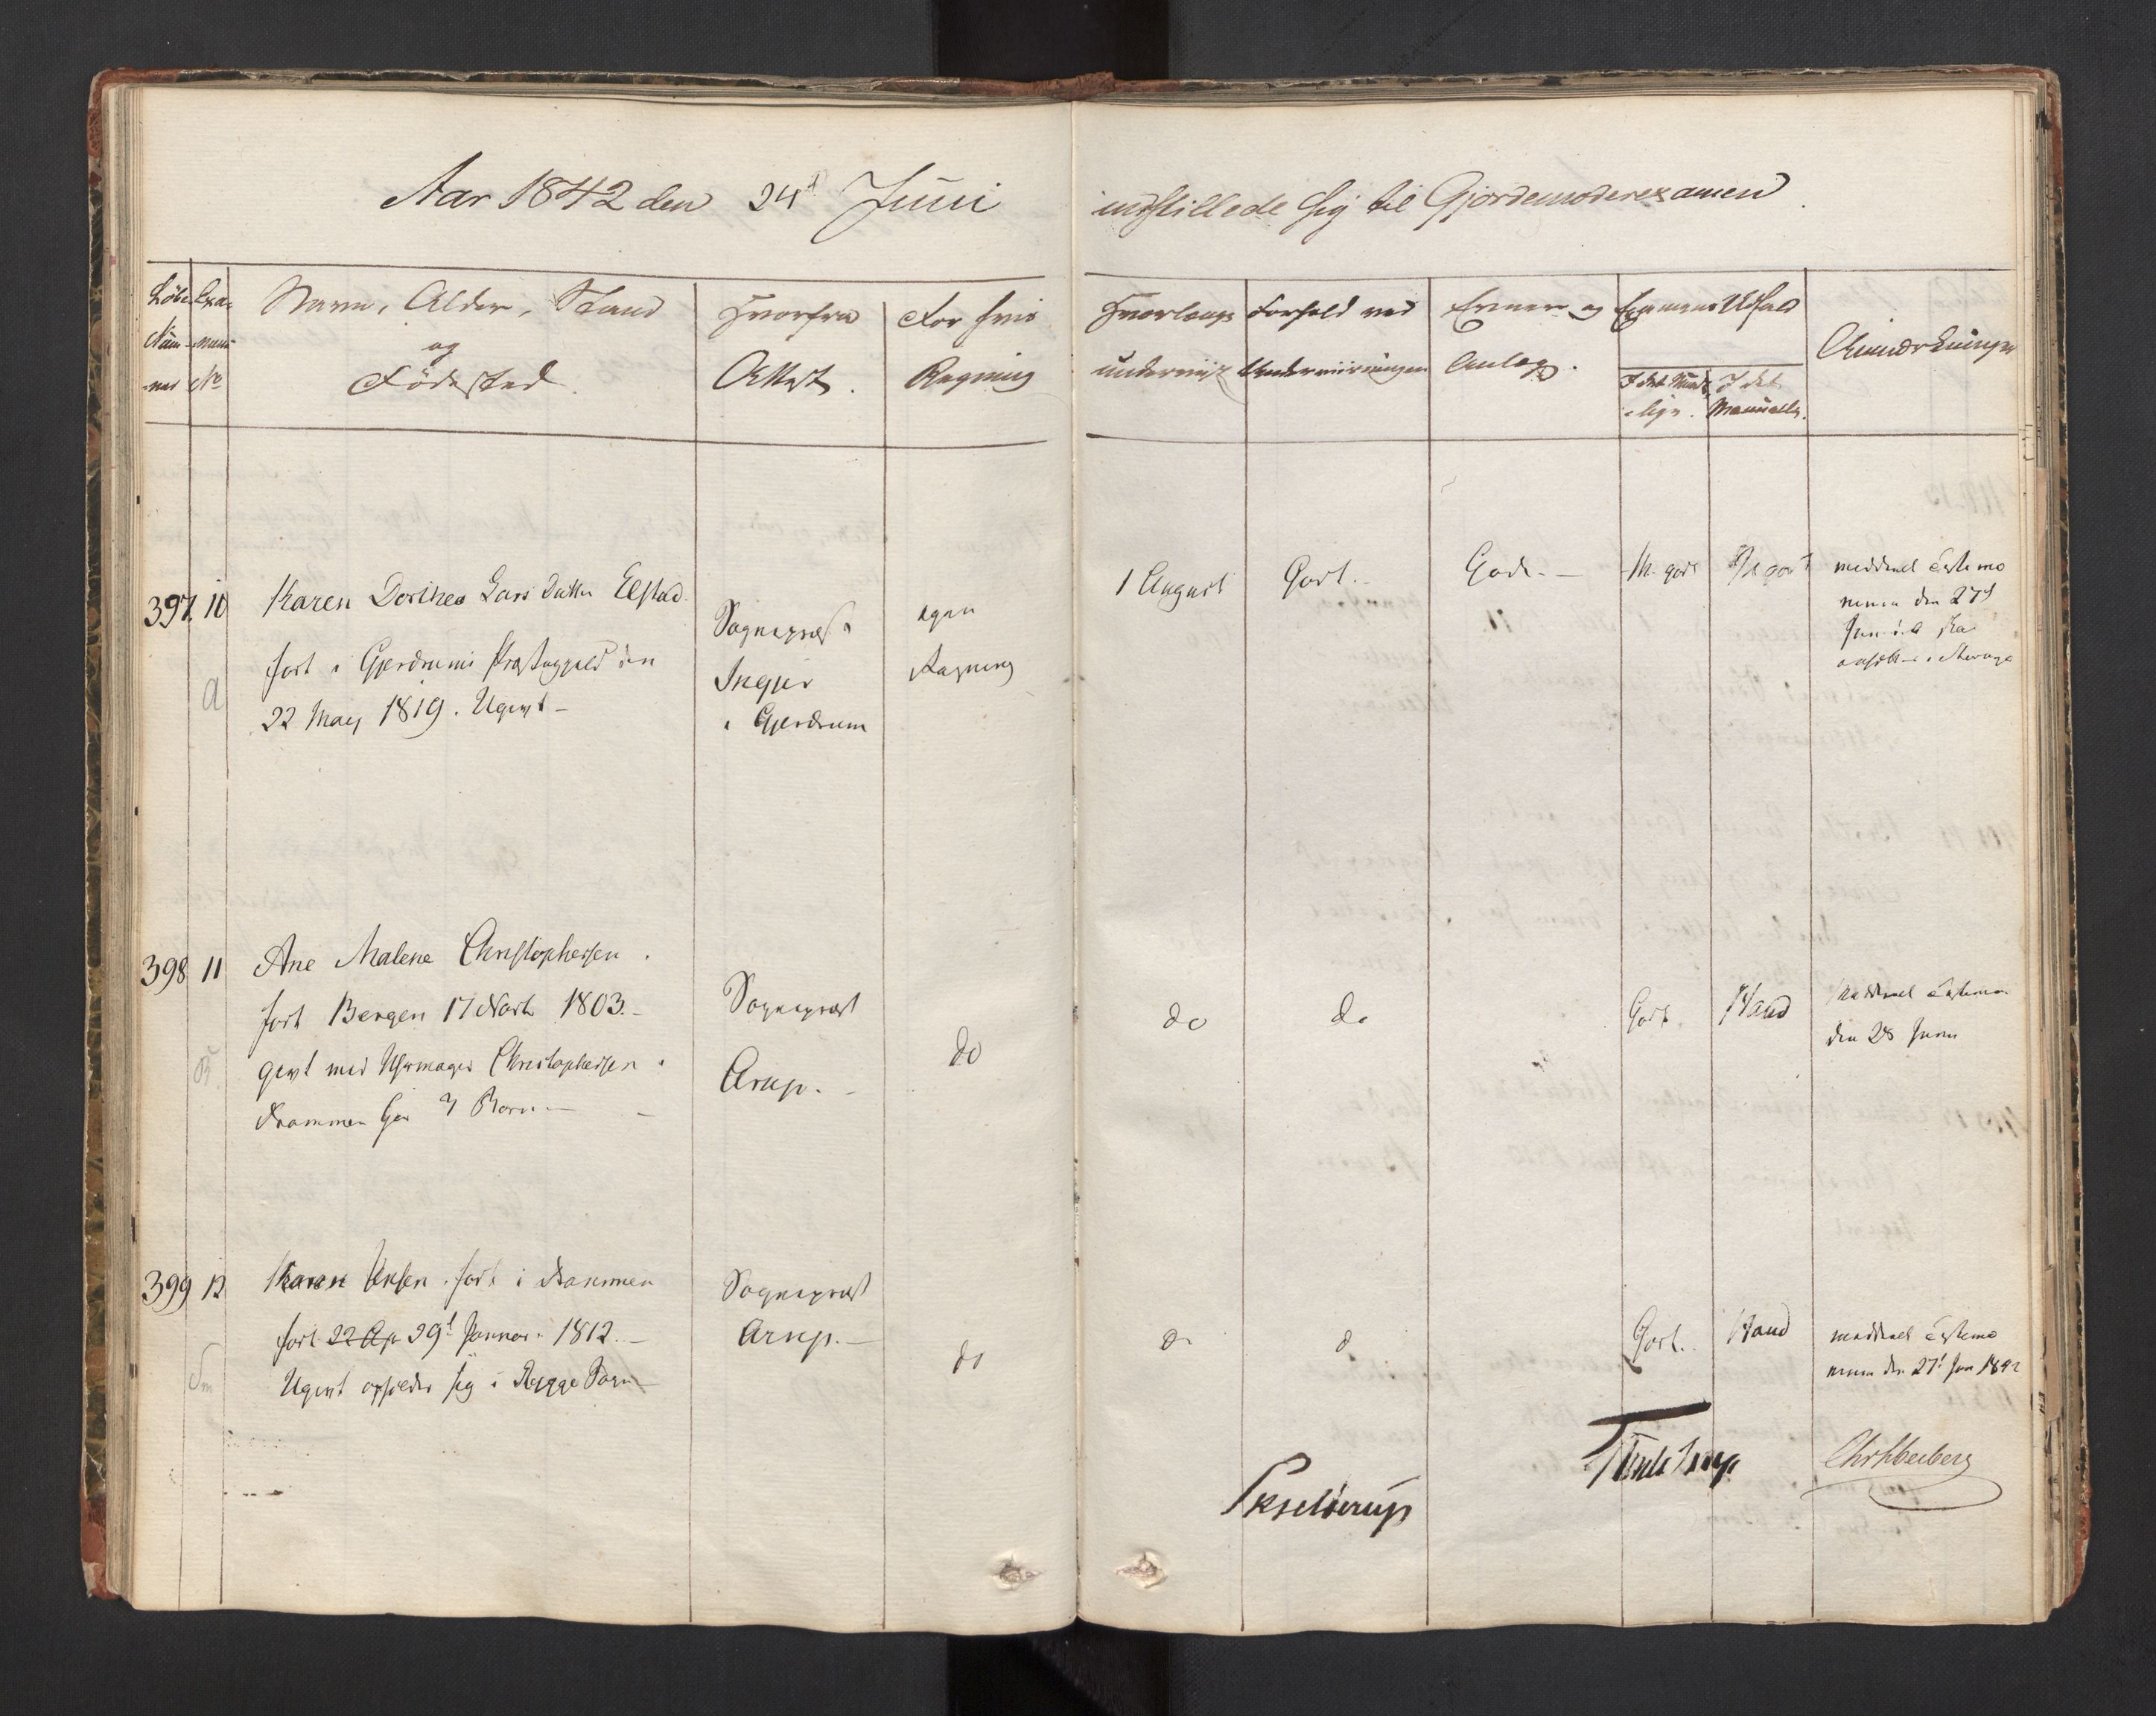 Aar 1842 den 24d Juni
indstillede sig til Gjordemoderexamen
Löbe
Num-
mer
Exa-
mens
No
Navn, Alder, Stand
og
Födested
Hvorfra
Attest.
For hvis
Regning
Hvorlænge
underviist
Forhold ved
Underviisningen
Evner og
Anlæg.
Examens Udfald
I det Mundt-
lige.
I det
Manuelle.
Anmærkninger
397. 10
Karen Dorthea Lars Datter Elstad
fort i Gjerdrums Præstegjeld den
22 May 1819. Ugivt -
Sognepræst
Ingier
i Gjerdrum
egen
Regning
1 August
Godt.-
Gode.-
M. godt
M godt
meddeelt Testimo
nium den 27d
Juni
a
398 11
Ane Malene Christophersen
fort Bergen 17 Novb 1803.-
givt med Uhrmager Christophersen i
Drammen har 4 Born -
Sognepræst
Arup.-
do
do
do
Godt
Haud
Meddeelt Testimon
den 28 Juni
399 12
Karen Jensen fort i Drammen
fort 22 Ap 29d Januar 1812.-
Ugivt opholder sig i Rygge Sogn
Sognepræst
Arup.-
do
do
d
Godt.
Haud
meddeelt Testimo
nium den 27d Jun 1842
Skjelderup
Thulstrup
Chr Heiberg